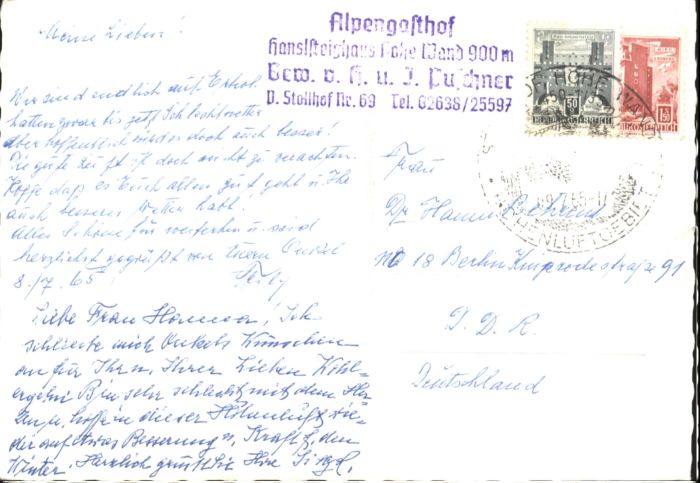 Meine Lieben!
Wir sind endlich auf Erhol.
hatten zwar bis jetzt Schlechtwetter
aber hoffentlich wird es doch auch besser!
Die gute Luft ist doch nicht zu verachten.
Hoffe daß es Euch allen gut geht u. Ihr
auch besseres Wetter habt!
Alles Schöne für weiterhin u. seid
herzlichst gegrüßt von Euern Onkel
8./7. 65
Liebe Frau Hanna, Ich
schließe mich Onkels Wünschen
an für Ihr u. Ihrer Lieben Wohl-
ergehn. Bin sehr schlecht mit dem Her
zen, hoffe in dieser Höhenluft wie-
der auf etwas Besserung u. Kraft f. den
Winter. Herzlich grüßt Sie Ihre
Alpengasthof
Hanslsteighaus Hohe Wand 900 m
Bew. v. H. u. J. Puschner
P. Stollhof Nr. 69 Tel. 02638/25597
50
REPUBLIK ÖSTERREICH
1.50
REPUBLIK ÖSTERREICH
HOHE WAND
HÖHENLUFTGEBIET
Frau
Dr. Hanna
18 Berlin Kniprodestraße 91
D. D. R.
Deutschland